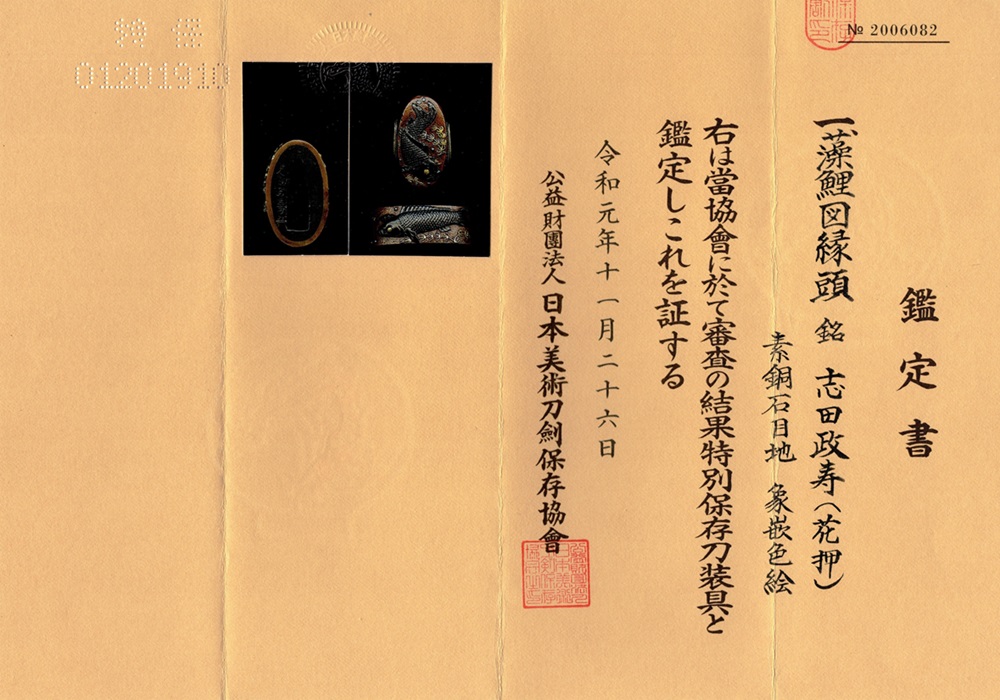 № 2006082
鑑定書
一、藻鯉図縁頭 銘 志田政寿(花押)
素銅石目地 象嵌色絵
右は當協會に於て審査の結果特別保存刀装具と
鑑定しこれを証する
令和元年十一月二十六日
公益財團法人 日本美術刀劍保存協會
01201910